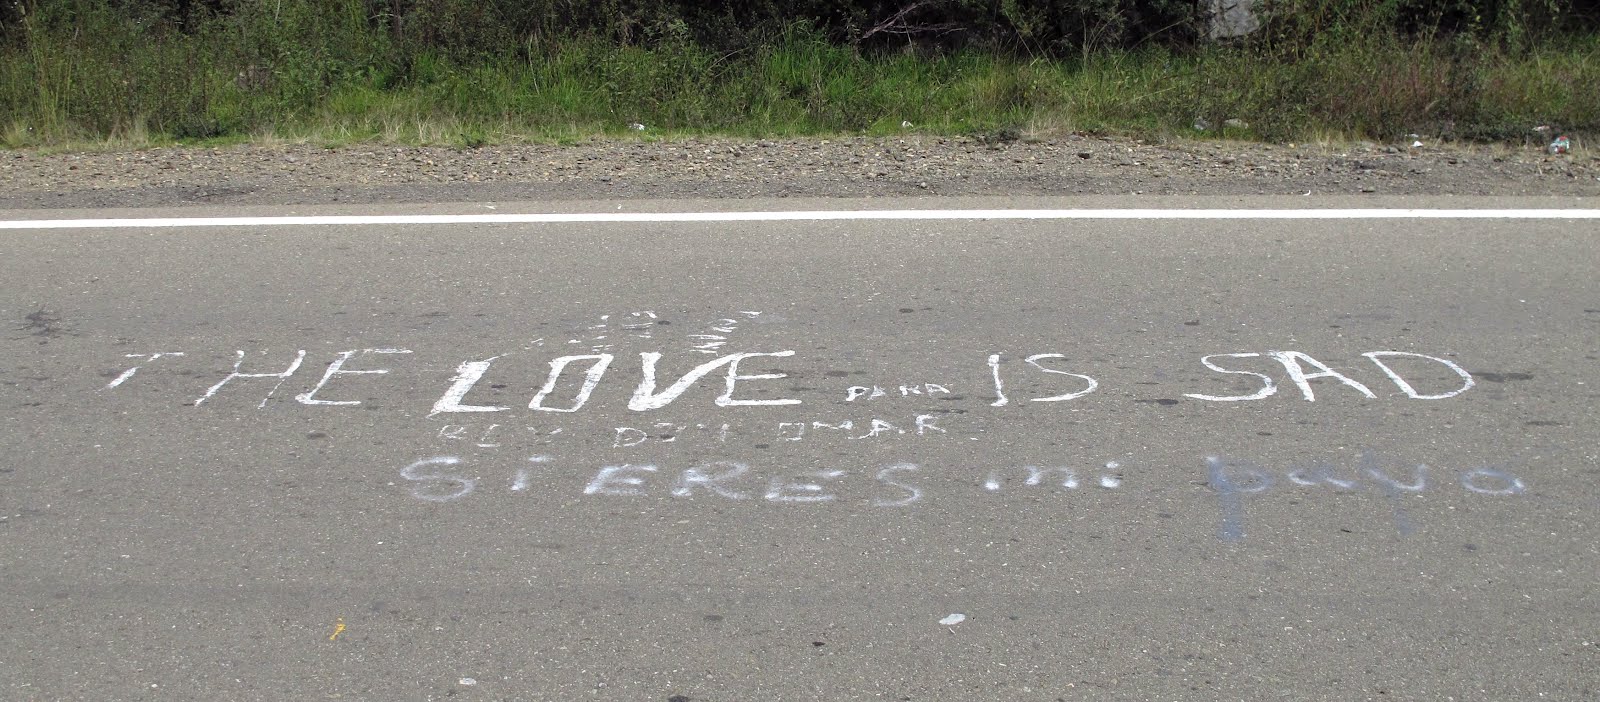 THE LOVE PARA IS SAD
OMAR
SI ERES mi payo